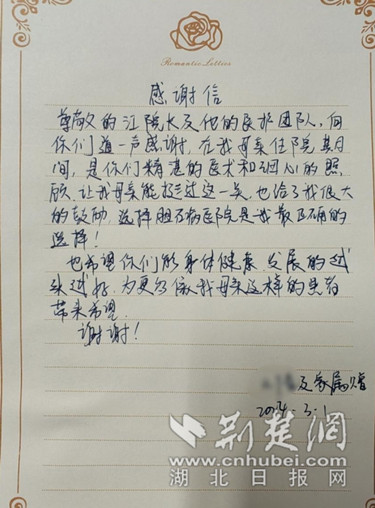 Romantic Letters
感谢信
尊敬的江院长及他的医护团队,向
你们道一声感谢,在我母亲住院其日
间,是你们精湛的医术和细心的照
顾,让我母亲能挺过这一关,也给了我很大
的鼓励,选择胆石病医院是我最正确的
选择!
也希望你们能身体健康,发展的越
来越好,为更多像我母亲这样的患者
带来希望.
谢谢!
及家属赠
2024.3.1
荆楚网
www.cnhubei.com
湖北日报网